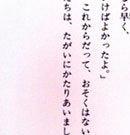 ら早く、
けばよかったよ。」
これからだって、おそくはない
たちは、たがいにかたりあいまし